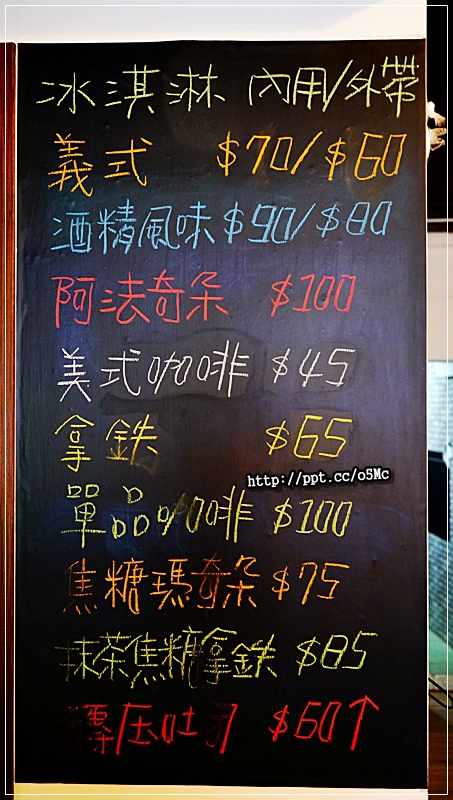 冰淇淋 內用/外帶
義式 $70/$60
酒精風味 $90/$80
阿法奇朵 $100
美式咖啡 $45
拿鉄 $65
http://ppt.cc/o5Mc
單品咖啡 $100
焦糖瑪奇朵 $75
抹茶焦糖拿鉄 $85
壓吐司 $60↑